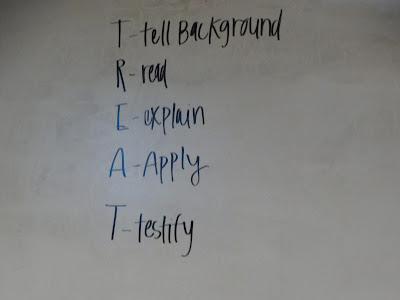 T-tell Background
R-read
E-explain
A-Apply
T-testify